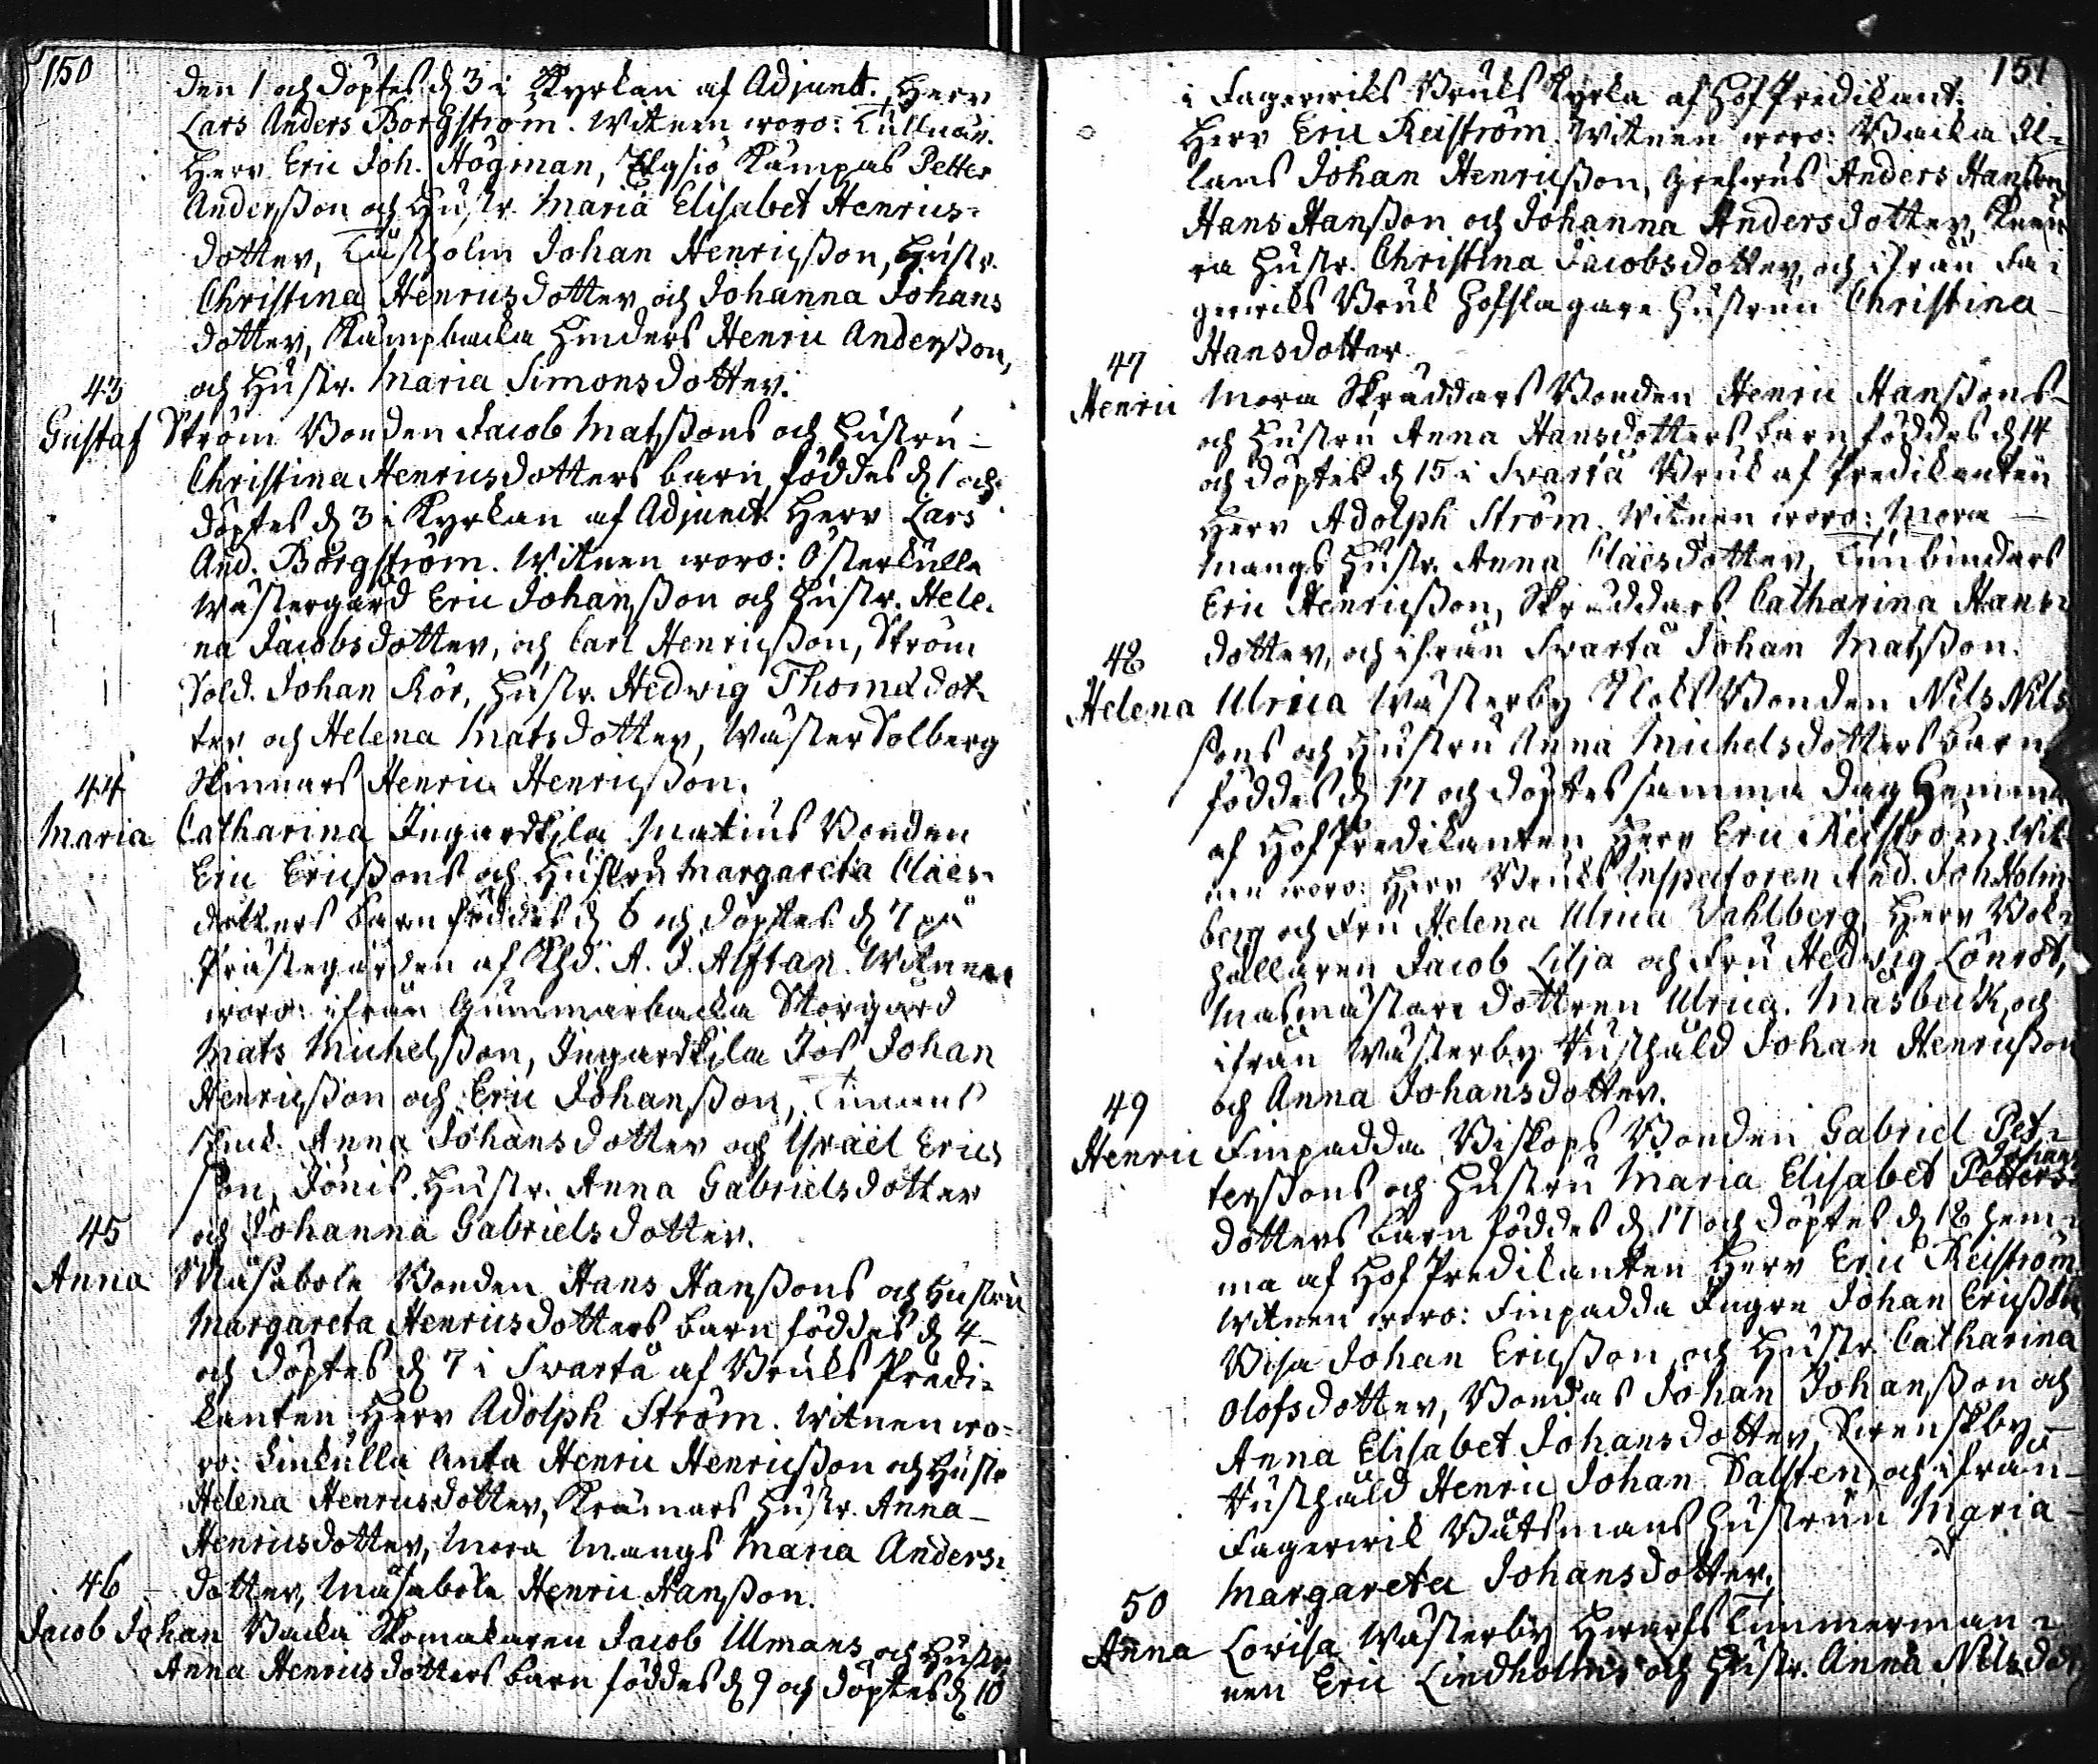 150
den 1 och döptes d 3 i Kyrkan af Adjunct. Herr
Lars Anders Borgström. Witnen woro: Tullnär.
Herr Eric Joh. Högman, Elgsiö Kämpas Petter
Andersson och Hustr. Maria Elisabet Henrics-
dotter, Johan Henricsson, Hustr.
Christina Henricsdotter och Johanna Johans
dotter, Kämpbacka Hinders Henric Andersson,
och Hustr. Maria Simonsdotter.
43
Gustaf Ström Bonden Jacob Matssons och Hustru
Christina Henricsdotters barn föddes d 1 och
döptes d 3 i Kyrkan af Adjunct. Herr Lars
And. Borgström. Witnen woro: Österkulla
Wästergård Eric Johansson och Hustr. Hele-
na Jacobsdotter, och Carl Henricsson, Ström
Sold. Johan Rör, Hustr. Hedwig Thomædot-
ter och Helena Matsdotter, Wäster Solberg
Skinnars Henric Henricsson.
44
Maria Catharina Ingardskila Matius Bonden
Eric Ericssons och Hustru Margareta Claës-
dotters barn föddes d 6 och döptes d 7 på
Prästegården af Khd. A. J. Alftan. Witnen
woro: ifrån Gummarbacka Storgård
Mats Michelsson, Ingardskila Jos Johan
Henricsson och Eric Johansson,
Anna Johansdotter och Israël Erics
son, Jönis Hustr. Anna Gabrielsdotter
och Johanna Gabrielsdotter.
45
Anna Mäsabole Bonden Hans Hanssons och Hustru
Margareta Henricsdotters barn föddes d 4
och döptes d 7 i Swartå af Bruks Predi-
kanten Herr Adolph Ström. Witnen wo-
ro: Linkulla Anta Henric Henricsson och Hustr
Helena Henricsdotter, Krämars Hustr. Anna
Henricsdotter, Mora Mangs Maria Anders-
dotter, Mäsabole Henric Hansson.
46
Jacob Johan Backa Skomakaren Jacob Ulmans och Hustr
Anna Henricsdotters barn föddes d 9 och döptes d 10
151
i Fagerwiks Bruks Kyrka af Hof Predikant.
Herr Eric Reiström. Witnen woro: Backa Al-
lans Johan Henricsson, Grefwus Anders Hansson
Hans Hansson och Johanna Andersdotter,
ra Hustr. Christina Jacobsdotter, och ifrån Fa-
gerwiks Bruk Hofslagare Hustrun Christina
Hansdotter.
47
Henric Mora Skräddars Bonden Henric Hanssons
och Hustru Anna Hansdotters barn föddes d 14
och döptes d 15 i Swartå Bruk af Predikanten
Herr Adolph Ström. Witnen woro: Mora
Mangs Hustr. Anna Claësdotter, Tunbinders
Eric Henricsson, Skräddars Catharina Hans-
dotter, och ifrån Swartå Johan Matsson.
48
Helena Ulrica Wästerby Klock Bonden Nils Nils
sons och Hustru Anna Michelsdotters barn
föddes d 17 och döptes samma dag hemma
af Hof Predikanten Herr Eric Reiström. Wit-
nen woro: Herr Bruks Inspectoren And. Joh. Holm-
berg och Fru Helena Ulrica Wahlberg, Herr Bok-
hållaren Jacob Lilja och Fru Hedwig Lönrot,
Masmästare dottren Ulrica Måsbeck, och
ifrån Wästerby Hushåld Johan Henricsson
och Anna Johansdotter.
49
Henric Finpadda Biskops Bonden Gabriel Pet-
Johans
terssons och Hustru Maria Elisabet Petters-
dotters barn föddes d. 17 och döptes d 18 hem-
ma af Hof Predikanten Herr Eric Reiström.
Witnen woro: Finpadda Ingre Johan Ericsson
Wisa Johan Ericsson, och Hustr. Catharina
Olofsdotter, Bondas Johan Johansson och
Anna Elisabet Johansdotter, Swenskby
Hushåld Henric Johan Dalsten, och ifrån
Fagerwik Båtsmans Hustrun Maria
Margareta Johansdotter.
50
Anna Lovisa Wästerby Hwarfs Timmerman-
nen Eric Lindholms och Hustr. Anna Nilsdot